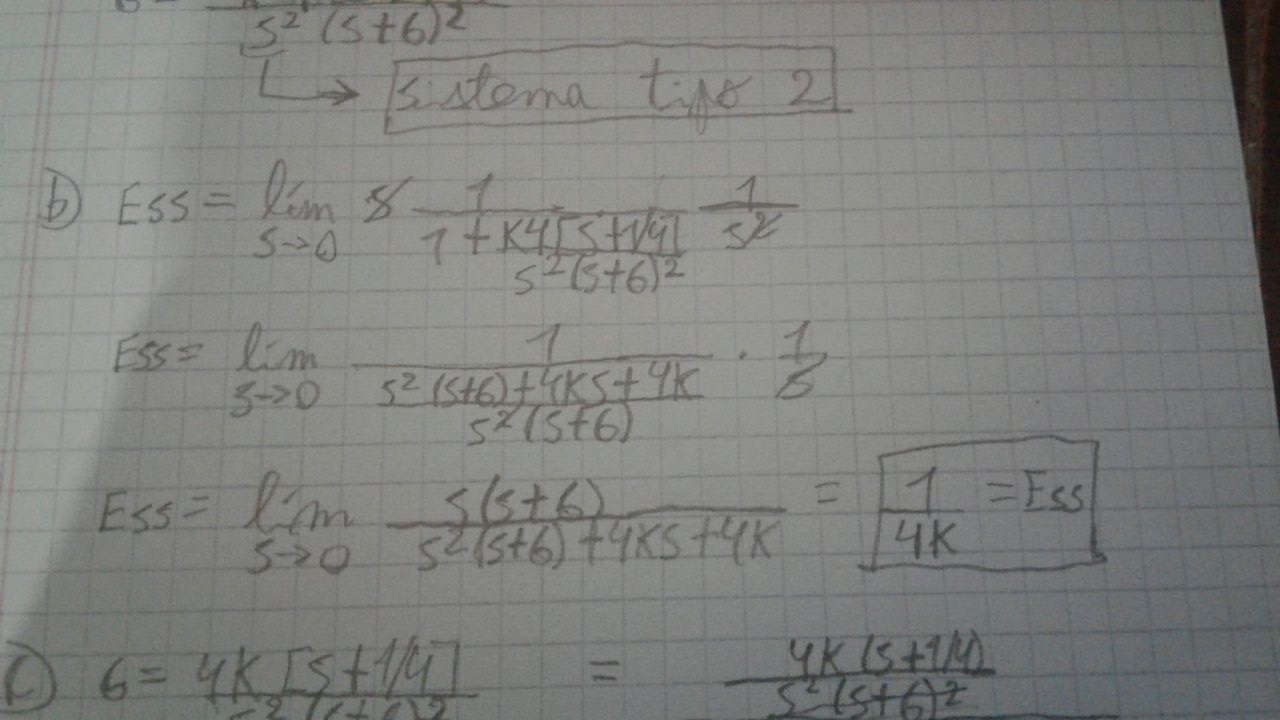 s²(s+6)²
↳ sistema tipo 2
b) Ess = lim s→0 s 1/(1 + K4[s+1/4]/(s²(s+6)²)) 1/s²
Ess = lim s→0 1/((s²(s+6)+4Ks+4K)/(s²(s+6))) · 1/s
Ess = lim s→0 s(s+6)/(s²(s+6)+4Ks+4K) = 1/4K = Ess
c) G = 4K[s+1/4]/(s²(s+6)²) = 4K(s+1/4)/(s²(s+6)²)